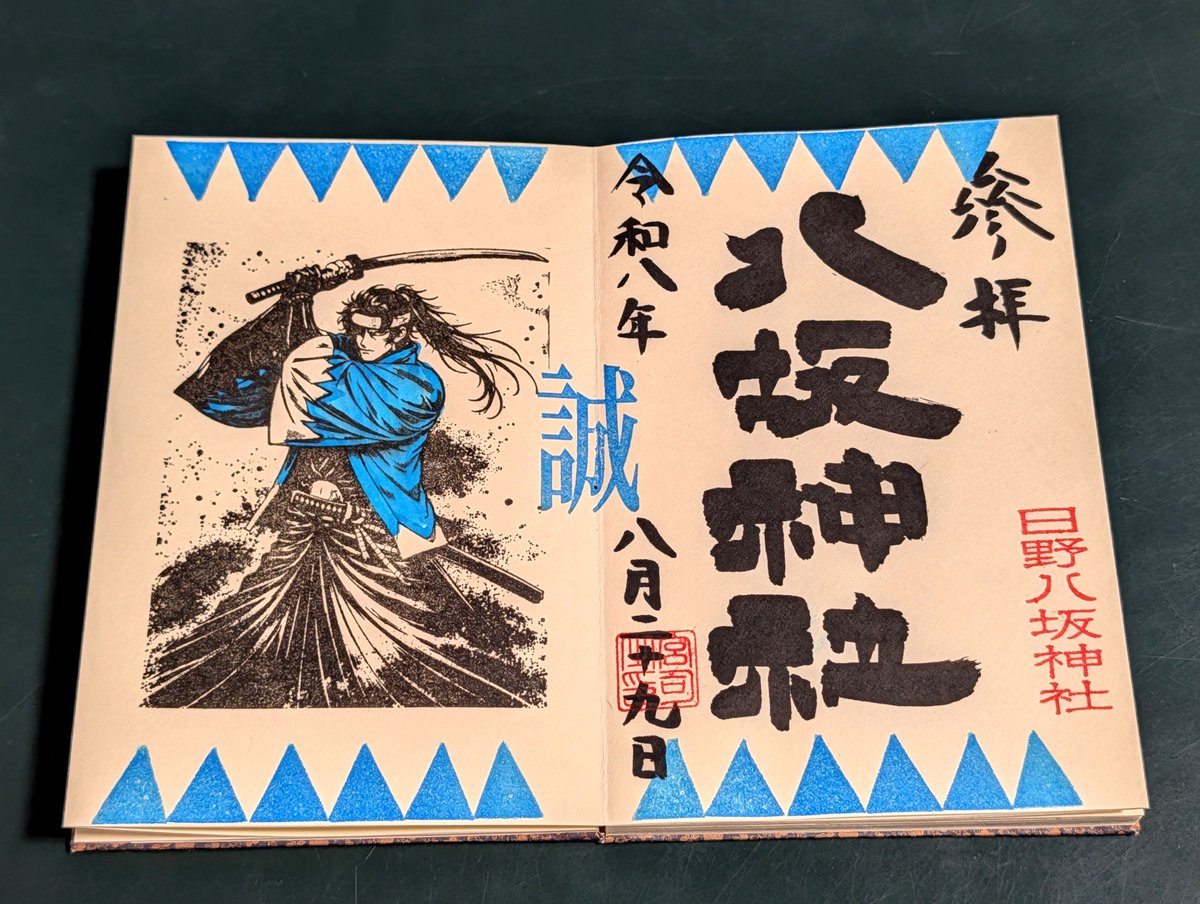 参拝
八坂神社
日野八坂神社
令和八年
八月二十九日
誠